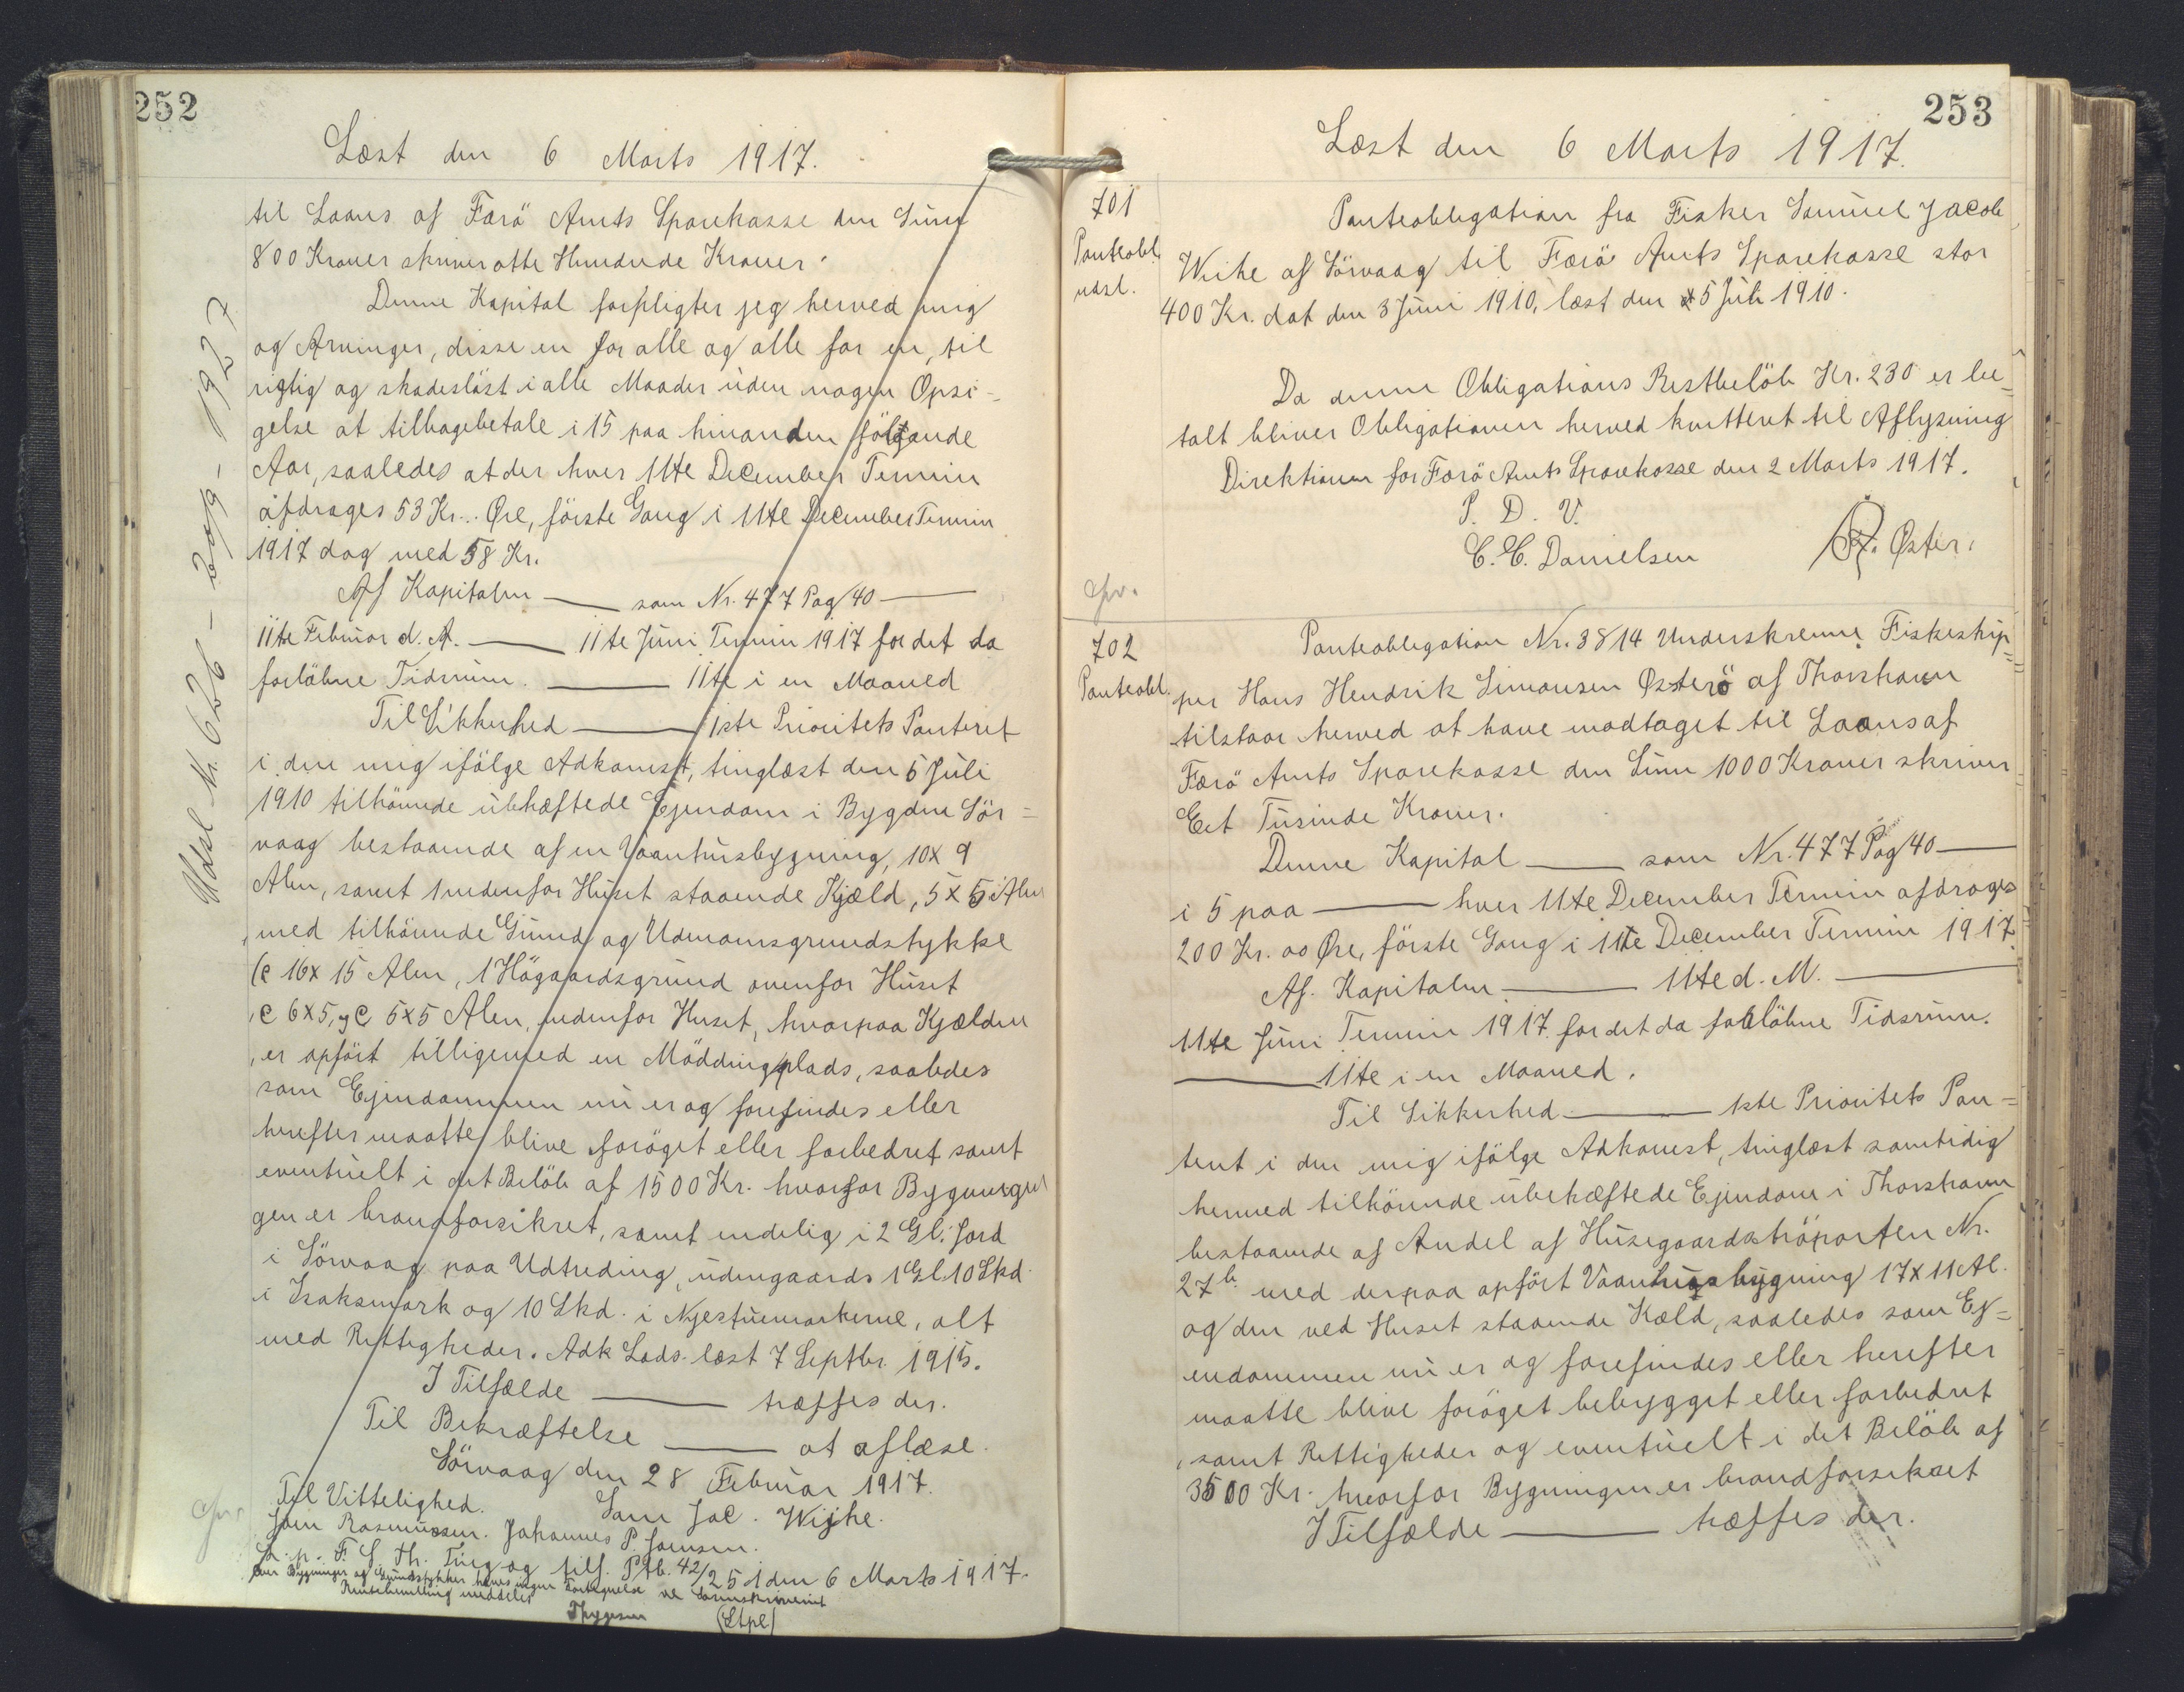 252
Læst den 6 Marts 1917.
til Laans af Færö Amts Sparekasse den Sum
800 Kroner skriver otte Hundrede Kroner.
Denne Kapital forpligter jeg herved mig
og Arvinger, disse en for alle og alle for en, til
rigtig og skadeslöst i alle Maader uden nogen Opsi-
gelse at tilbagebetale i 15 paa hinanden fölgende
Aar, saaledes at der hver 11te December Termin
afdrages 53 Kr. .. Øre, förste Gang i 11te December Termin
1917 dog med 58 Kr.
Af Kapitalen — som Nr. 477 Pag 40 —
11te Februar d. A. — 11te Juni Termin 1917 for det da
forløbne Tidsrum. — 11te i en Maaned
Til Sikkerhed — 1ste Prioritets Panteret
i den mig ifölge Adkomst, tinglæst den 5 Juli
1910 tilhörende ubehæftede Ejendom i Bygden Sör=
vaag bestaaende af en Vaanhusbygning, 10 x 9
Alen, samt 1 nedenfor Huset staaende Kjæld, 5 x 5 Alen
, med tilhörende Grund og Udmarksgrundstykke
(c 16 x 15 Alen, 1 Högaardsgrund ovenfor Huset
, c 6x5, og c 5x5 Alen, nedenfor Huset, hvorpaa Kjælden
, er opfört tilligemed en Möddingplads, saaledes
som Ejendommen nu er og forefindes eller
herefter maatte blive foröget eller forbedret samt
eventuelt i det Belöb af 1500 Kr. hvorfor Bygningen
gen er brandforsikret, samt endelig i 2 Gl. Jord
i Sörvaag paa Udtreding, udengaards 1 Gl. 10 Skd.
i Isaksmark og 10 Skd. i Njestuemarkerne, alt
med Rettigheder. Adk Lods. læst 7 Septbr. 1915.
I Tilfælde — træffes der.
Til Bekræftelse — at aflæse.
Sörvaag den 28 Februar 1917.
Til Vittelighed. Sam Jac. Wijhe.
Joen Rasmussen. Johannes P. Joensen.
L. p. F. S. Th. Ting og tilf. Ptb. 42/251 den 6 Marts 1917.
Over Bygninger og Grundstykker haves ingen Fortegnelse ved Sorenskriveriet
meddeles
Thygesen (Stpl)
Udsl Nr. 626 - 20/9 - 1927
253
Læst den 6 Marts 1917.
701
Panteobl.
udsl.
Panteobligation fra Fisker Samuel Jacob
Wihe af Sörvaag til Færö Amts Sparekasse stor
400 Kr. dat den 3 Juni 1910, læst den 5 Juli 1910.
Da denne Obligations Restbelöb Kr. 230 er be=
talt bliver Obligationen herved kvitteret til Aflysning
Direktionen for Færö Amts Sparekasse den 2 Marts 1917.
P. D. V.
C. C. Danielsen Øster.
702
Panteobl.
Panteobligation Nr. 3814 Underskrevne Fiskeskip=
per Hans Hendrik Simonsen Østerö af Thorshavn
tilstaar herved at have modtaget til Laans af
Færö Amts Sparekasse den Sum 1000 Kroner skriver
Eet Tusinde Kroner.
Denne Kapital — som Nr. 477 Pag 40 —
i 5 paa — hver 11te December Termin afdrages
200 Kr. 00 Øre, förste Gang i 11te December Termin 1917.
Af Kapitalen — 11te d. M. —
11te Juni Termin 1917 for det da forlöbne Tidsrum.
— 11te i en Maaned.
Til Sikkerhed — 1ste Prioritets Pan=
teret i den mig ifölge Adkomst, tinglæst samtidig
hermed tilhörende ubehæftede Ejendom i Thorshavn
bestaaende af Andel af Husegaardströparten Nr.
27b med derpaa opfört Vaanhusbygning 17 x 11 Al.
og den ved Huset staaende Kæld, saaledes som Ej=
endommen nu er og forefindes eller herefter
maatte blive foröget bebygget eller forbedret
, samt Rettigheder og eventuelt i det Belöb af
3500 Kr. hvorfor Bygningen er brandforsikret
I Tilfælde — træffes der.